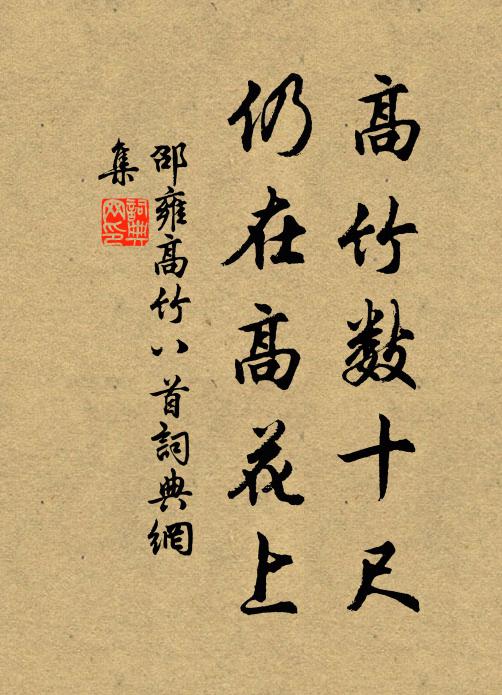 高竹数十尺
仍在高花上
邵雍高竹八首詞典網
集
詞典网印